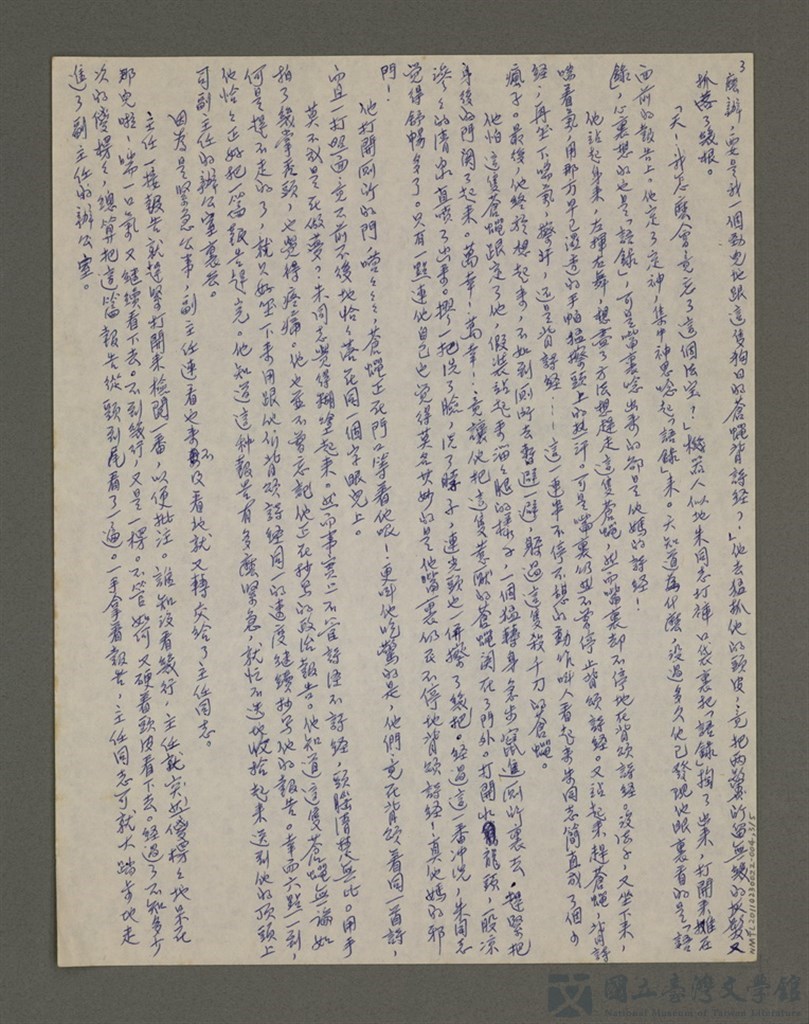 3
磨辦，要是我一個勁兒地跟這隻狗日的蒼蠅背詩經？」他去猛抓他的頭皮，竟把兩鬢所留無幾的灰髮又
抓落了幾根。
「天！我怎麼會竟忘了這個法寶！」機器人似地朱同志打褲口袋裏把「語錄」掏了出來，打開來攤在
面前的報告上。他定了定神，集中神思唸起「語錄」來。天知道為什麼，沒過多久他已發現他眼裏看的是「語
錄」，心裏想的也是「語錄」，可是嘴裏唸出來的卻是他媽的詩經！
他站起身來，左揮右舞，想盡了方法想趕走這隻蒼蠅，然而嘴裏却不停地在背頌詩經。沒法子，又坐下來，
喘着氣，用那方早已濕透的手帕猛擦頭上的熱汗。可是嘴裏仍然不曾停止背頌詩經。又站起來趕蒼蠅，背詩
經；再坐下喘氣，擦汗，還是背詩經……這一連串不停不想的動作叫人看起來朱同志簡直成了個
瘋子。最後，他終於想起來，不如到厠所去暫避一避，躲過這隻殺千刀的蒼蠅。
他怕這隻蒼蠅跟定了他，假裝站起來溜溜腿的樣子，一個猛轉身急步竄進厠所裏去，趕緊把
身後的門関了起來。萬幸！萬幸！竟讓他把這隻惹厭的蒼蠅関在了門外。打開水龍頭，一股凉
滲滲的清泉直噴了出來。撈一把洗了臉，洗了脖子，連光頭也一併擦了幾把。經過這一番冲洗，朱同志
覺得舒暢多了。只有一點連他自己也覺得莫名其妙的是他嘴裏仍在不停地背頌詩經！真他媽的邪
門！
他打開厠所的門，嗡嗡嗡，蒼蠅正在門口等着他呢！更叫他吃驚的是，他們竟在背頌着同一首詩，
而且一打照面竟不前不後地恰恰落在同一個字眼兒上。
莫不成是在做夢？朱同志覺得糊塗起來。然而事實上不管詩經不詩經，頭腦清楚無比。用手
拍了幾掌光頭，也覺得疼痛。他也並不曾忘記他正在抄寫的政治報告。他知道這隻蒼蠅無論如
何是趕不走的了，就只好坐下來用跟他們背頌詩經同一的速度繼續抄寫他的報告。幸而六點一到，
他恰恰正好把一篇報告趕完。他知道這种報告有多麼緊急，就忙不迭地收拾起來送到他的頂頭上
司副主任的辦公室裏去。
因為是緊急公事，副主任連看也來不及看地就又轉交給了主任同志。
主任一接報告就趕緊打開來檢閱一番，以便批注。誰知沒看幾行，主任就突然傻楞楞地呆在
那兒啦，喘一口氣又繼續看下去。不到幾行，又是一楞。不管如何又硬着頭皮看下去。經過了不知多少
次的傻楞楞，總算把這篇報告從頭到尾看了一遍。一手拿着報告，主任同志可就大踏步地走
進了副主任的辦公室。
NMTL20110230022-004.(3/5)
國立臺灣文學館
National Museum of Taiwan Literature